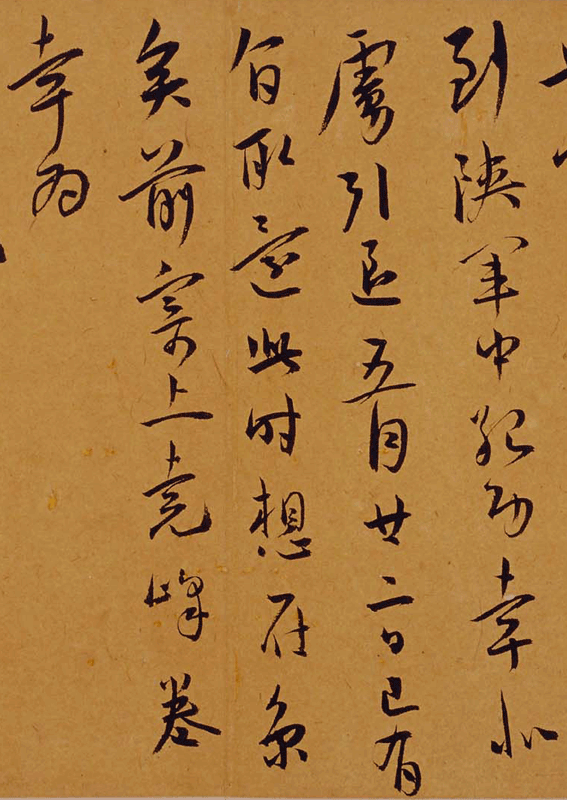 到陝軍中紀功幸北
虜引退五月廿二日已有
旨取還此時想在京
矣前寄上堯峰卷
幸為